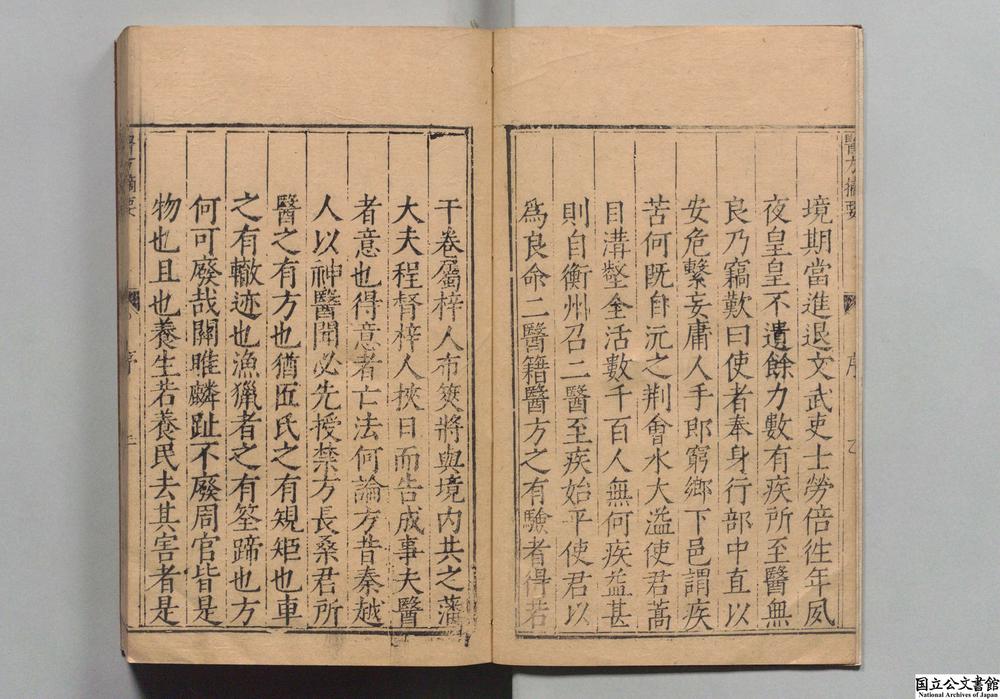 境期當進退文武吏士勞倍徃年夙
夜皇皇不遺餘力數有疾所至醫無
良乃竊歎曰使者奉身行部中直以
安危繫妄庸人手即窮鄉下邑謂疾
苦何既自沅之荆會水大溢使君蒿
目溝壑全活數千百人無何疾益甚
則自衡州召二醫至疾始平使君以
爲良命二醫籍醫方之有驗者得若
干卷屬梓人布筴將與境内共之藩
大夫程督梓人挾日而告成事夫醫
者意也得意者亡法何論方昔秦越
人以神醫聞必先授禁方長桑君所
醫之有方也猶匠氏之有規矩也車
之有轍迹也漁獵者之有筌蹄也方
何可廢哉關雎麟趾不廢周官皆是
物也且也養生若養民去其害者是
醫方摘要
序
醫方摘要
序
国立公文書館
National Archives of Japan